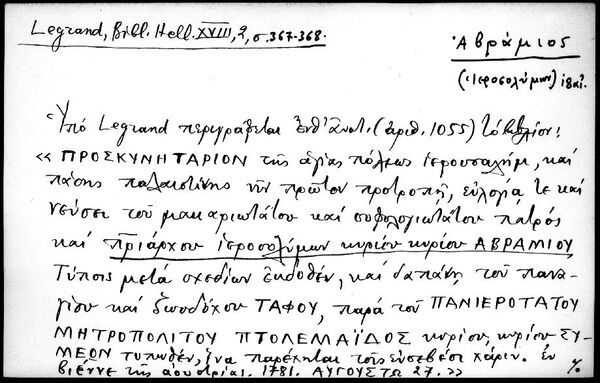 Legrand, Bibl. Hell. XVIII, 2, σ. 367-368.
Ἀβράμιος
(Ἱεροσολύμων)
Ὑπό Legrand περιγράφεται (ἀριθ. 1055) τό βιβλίον:
«ΠΡΟΣΚΥΝΗΤΑΡΙΟΝ τῆς ἁγίας πόλεως ἱερουσαλήμ, καί
πάσης παλαιστίνης νῦν πρῶτον προτροπῇ, εὐλογίᾳ τε καί
νεύσει τοῦ μακαριωτάτου καί σοφολογιωτάτου πατρός
καί π̅ριάρχου ἱεροσολύμων κυρίου κυρίου ΑΒΡΑΜΙΟΥ,
Τύποις μετά σχεδίων ἐκδοθέν, καί δαπάνῃ τοῦ πανα-
γίου καί ζωοδόχου ΤΑΦΟΥ, παρά τοῦ ΠΑΝΙΕΡΟΤΑΤΟΥ
ΜΗΤΡΟΠΟΛΙΤΟΥ ΠΤΟΛΕΜΑΪΔΟΣ κυρίου, κυρίου ΣΥ-
ΜΕΟΝ τυπωθέν, ἵνα παρέχηται τοῖς εὐσεβέσι χάριν. Ἐν
βιέννε τῆς ἀουστρίας. 1781. ΑΥΓΟΥΣΤΩ 27.»
%